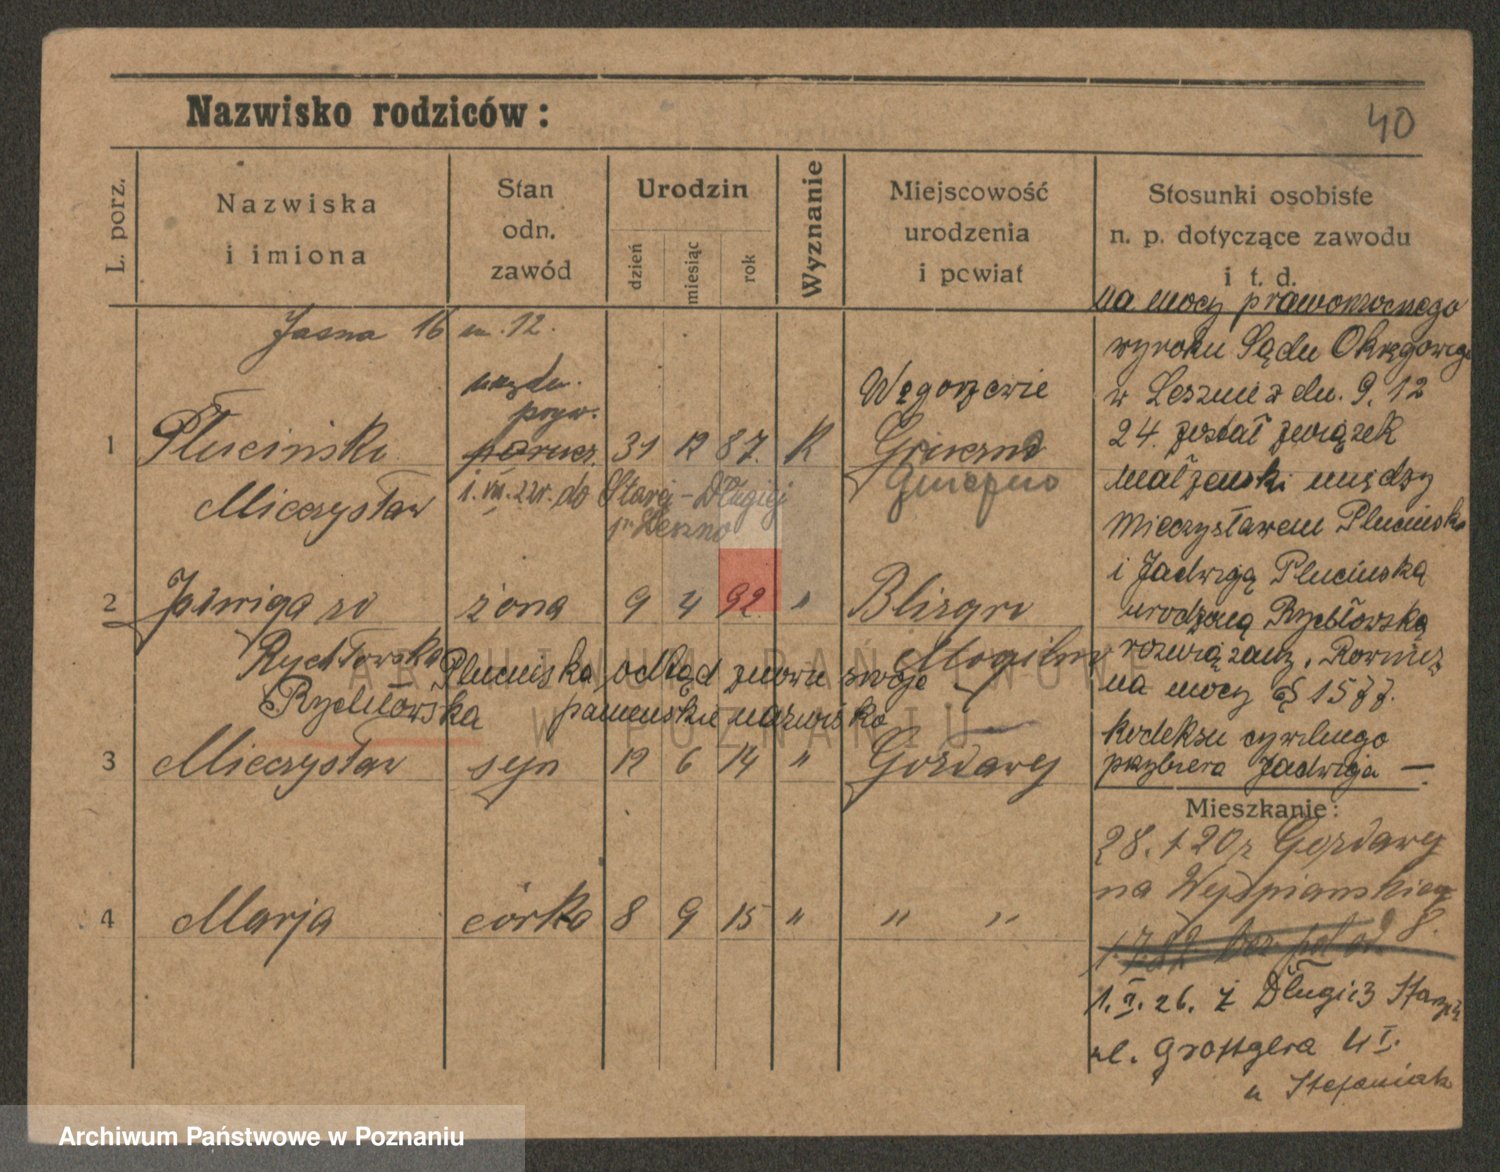 Nazwisko rodziców:
40
L. porz.
Nazwiska
i imiona
Stan
odn.
zawód
Urodzin
dzień
miesiąc
rok
Wyznanie
Miejscowość
urodzenia
i powiat
Stosunki osobiste
n. p. dotyczące zawodu
i t. d.
Jasna 16 m. 12.
1 Pluciński 31 12 87. K
Mieczysław
Węgorzewie
Gniezno
1. VII. 22r. do Starej-Długiej
p. Leszno
2 Jadwiga zd żona 9 4 92. "
Rychłowska
Rychłowska
Mogilno
Plucińska, odtąd znowu swoje
panieńskie nazwisko
3 Mieczysław syn 12 6 14 " Gozdawy
4 Marja córka 8 9 15 " " "
na mocy prawomocnego
wyroku Sądu Okręgowego
w Lesznie z dn. 9. 12
24. został związek
małżeński między
Mieczysławem Plucińskim
i Jadwigą Plucińską
urodzoną Rychłowską
rozwiązany. Również
na mocy § 1577.
kodeksu cywilnego
przybiera Jadwiga —
Mieszkanie:
28. 1 20 z Gozdawy
na Wyspiańskiego
8.
1. II. 26. z Długiej Starej
ul. Grottgera 4 I.
u Stefaniak
ARCHIWUM PAŃSTWOWE
W POZNANIU
Archiwum Państwowe w Poznaniu